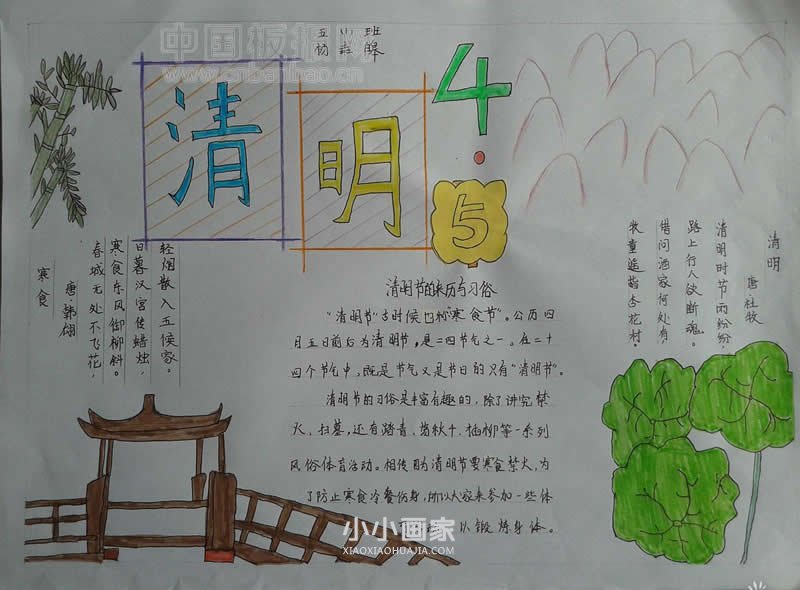 中国板报网
www.cnbanbao.cn
五 班
清明
4·5
寒食
唐·韩翃
春城无处不飞花,
寒食东风御柳斜。
日暮汉宫传蜡烛,
轻烟散入五侯家。
清明节的来历与习俗
“清明节”古时候也称“寒食节”。公历四
月五日前后为清明节,是二四节气之一。在二十
四个节气中,既是节气又是节日的只有“清明节”。
清明节的习俗是丰富有趣的,除了讲究禁
火、扫墓,还有踏青、荡秋千、插柳等一系列
风俗体育活动。相传因为清明节要寒食禁火,为
了防止寒食冷餐伤身,所以大家来参加一些体
以锻炼身体。
清明
唐 杜牧
清明时节雨纷纷,
路上行人欲断魂。
借问酒家何处有,
牧童遥指杏花村。
小小画家
XIAOXIAOHUAJIA.COM